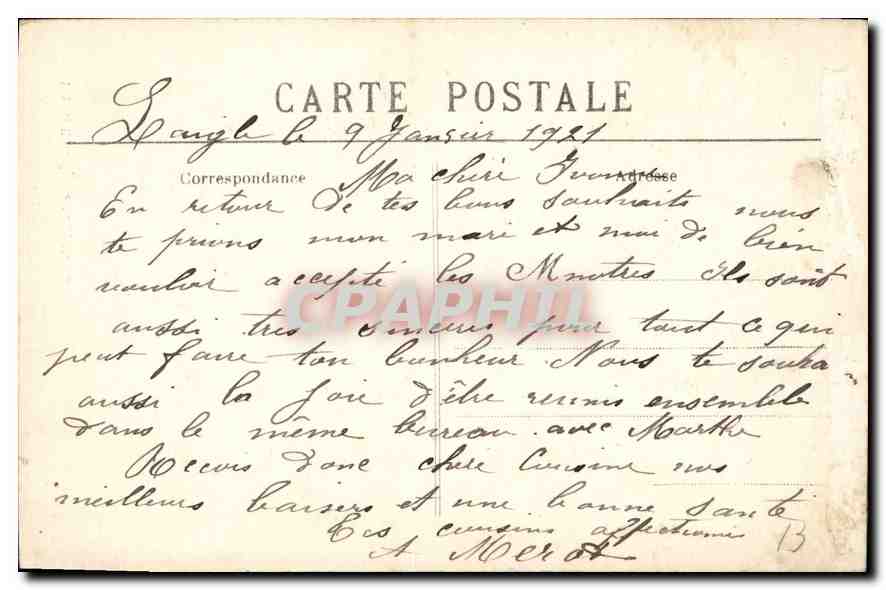 CARTE POSTALE
Laigle le 9 Janvier 1921
Correspondance
Adresse
Ma chère Yvonne
En retour de tes bons souhaits nous
te prions mon mari et moi de bien
vouloir accepté les nôtres Ils sont
aussi très sincères pour tout ce qui
peut faire ton bonheur. Nous te souha
aussi la joie d'être réunis ensemble
dans le même bureau avec Marthe
Reçois donc chère Cousine nos
meilleurs baisers et une bonne santé
Tes cousins affectionnés
A Merot
B
CPAPHIL